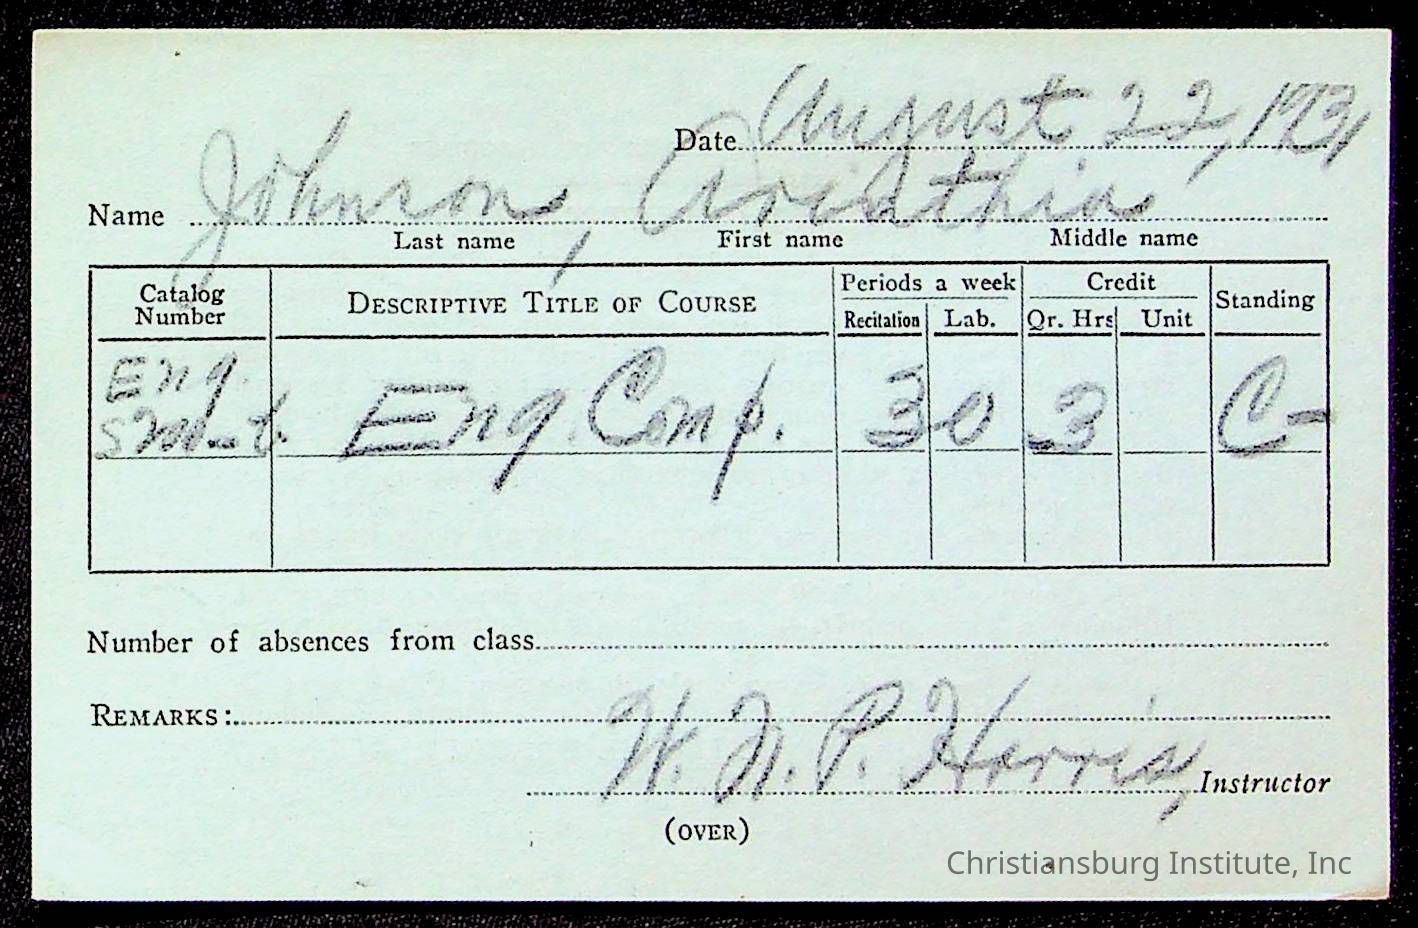 Date August 22, 1931
Name Johnson,
Last name First name Middle name
Catalog Number DESCRIPTIVE TITLE OF COURSE Periods a week Credit Standing
Recitation Lab. Qr. Hrs Unit
Eng. Eng. Comp. 3 0 3 C-
Number of absences from class
REMARKS:
W. N. P. Harris, Instructor
(OVER)
Christiansburg Institute, Inc